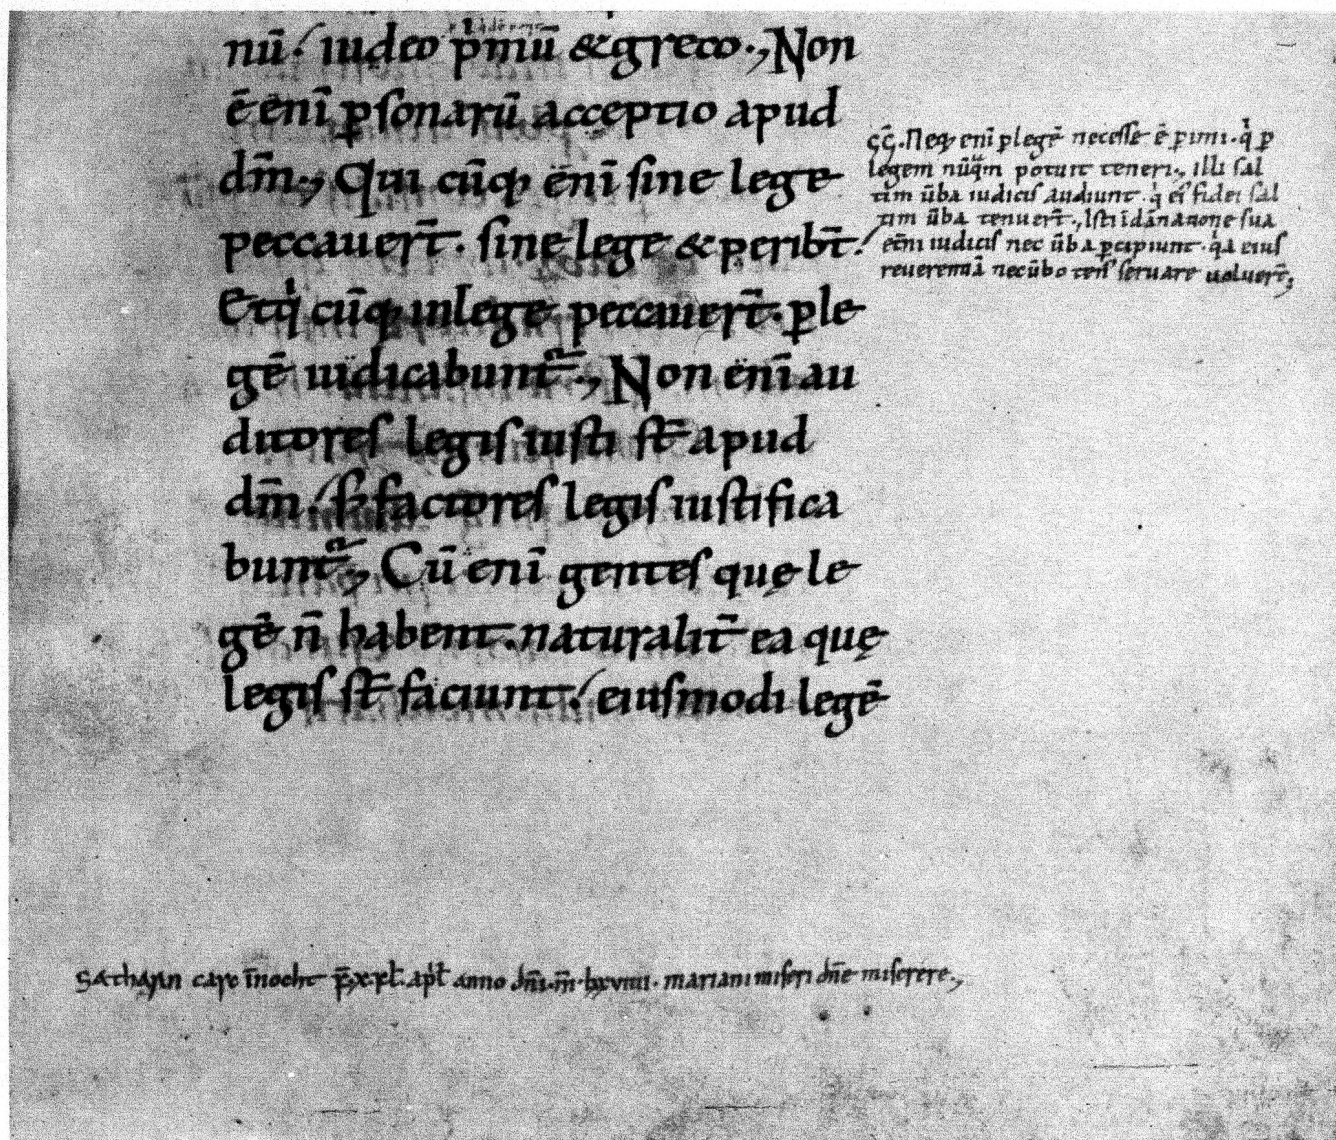 nū⁒ iudeo p̄mū &greco·, Non
ē enī ꝑsonarū acceptio apud
dm̄·, Qui cūq; enī sine lege
peccauer̄t· sine lege & peribt̄⁒
Etqͥ cūq; inlege peccauer̄t· ꝑle
gē iudicabunt᷑·, Non enī au
ditores legis iusti st̄ apud
dm̄⁒ s; factores legis iustifica
bunt᷑·, Cū enī gentes quę le
gē n̄ habent· naturalit̄ ea quę
legis st̄ faciunt⁒ eiusmodi legē
Neq; enī ꝑlegē necesse ē ꝑimi· qͥ ꝑ
legem nūqͣm potuit teneri·, Illi sal
tim ūba iudicis audiunt· qͥ eiꝰ fidei sal
tim ūba tenuer̄t·, Isti īdānatione sua
et̄ni iudicis nec ūba ꝑcipiunt· qͣ eius
reuerentiā nec ūbo ten; seruare uoluer̄t;
Sathairn caiʀc īnocht p̄· x·kł· apł anno dn̄i· m̄· lxviiii· mariani miseri dn̄e miserere·,